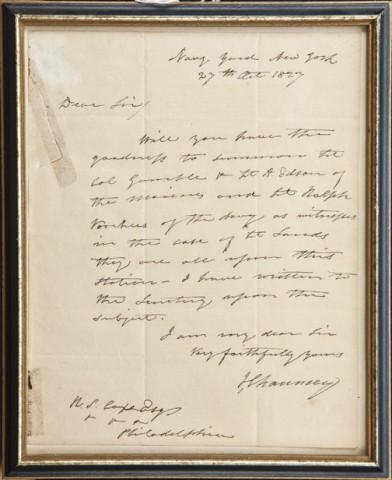 Navy Yard New York
27th Oct 1827
Dear Sir
Will you have the
goodness to summon Lt
Col Gamble & Lt A Edson of
the Marines and Lt Ralph
Voorhees of the Navy as witnesses
in the case of Lt Sands
they are all upon this
Station - I have written to
the Secretary upon the
subject.
I am my dear Sir
Very faithfully yours
I Chauncey
R. S. Coxe Esqr
Philadelphia